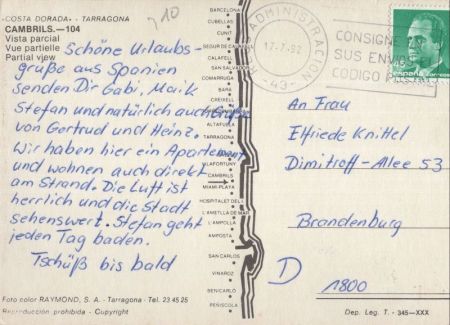 «COSTA DORADA» - TARRAGONA
CAMBRILS.—104
Vista parcial
Vue partielle
Partial view
Schöne Urlaubs-
grüße aus Spanien
senden Dir Gabi, Maik
Stefan und natürlich auch Grüße
von Gertrud und Heinz.
Wir haben hier ein Apartement
und wohnen auch direkt
am Strand. Die Luft ist
herrlich und die Stadt
sehenswert. Stefan geht
jeden Tag baden.
Tschüß bis bald
Foto color RAYMOND, S. A. - Tarragona - Tel. 23 45 25
Reproducción prohibida - Copyright
BARCELONA
CUBELLAS
CUNIT
SEGUR DE CALAFELL
CALAFELL
SAN SALVADOR
COMARRUGA
BARÁ
CREIXELL
ALTAFULLA
TARRAGONA
VILAFORTUNY
CAMBRILS
MIAMI-PLAYA
HOSPITALET DEL I.
L'AMETLLA DE MAR
L'AMPOLLA
AMPOSTA
SAN CARLOS
VINAROZ
BENICARLÓ
PEÑISCOLA
ADMINISTRACIO
17-7-92
-43-
CONSIGNE
SUS ENVI
CODIGO
45
España
An Frau
Elfriede Knittel
Dimitroff-Allee 53
Brandenburg
D 1800
Dep. Leg. T. - 345-XXX